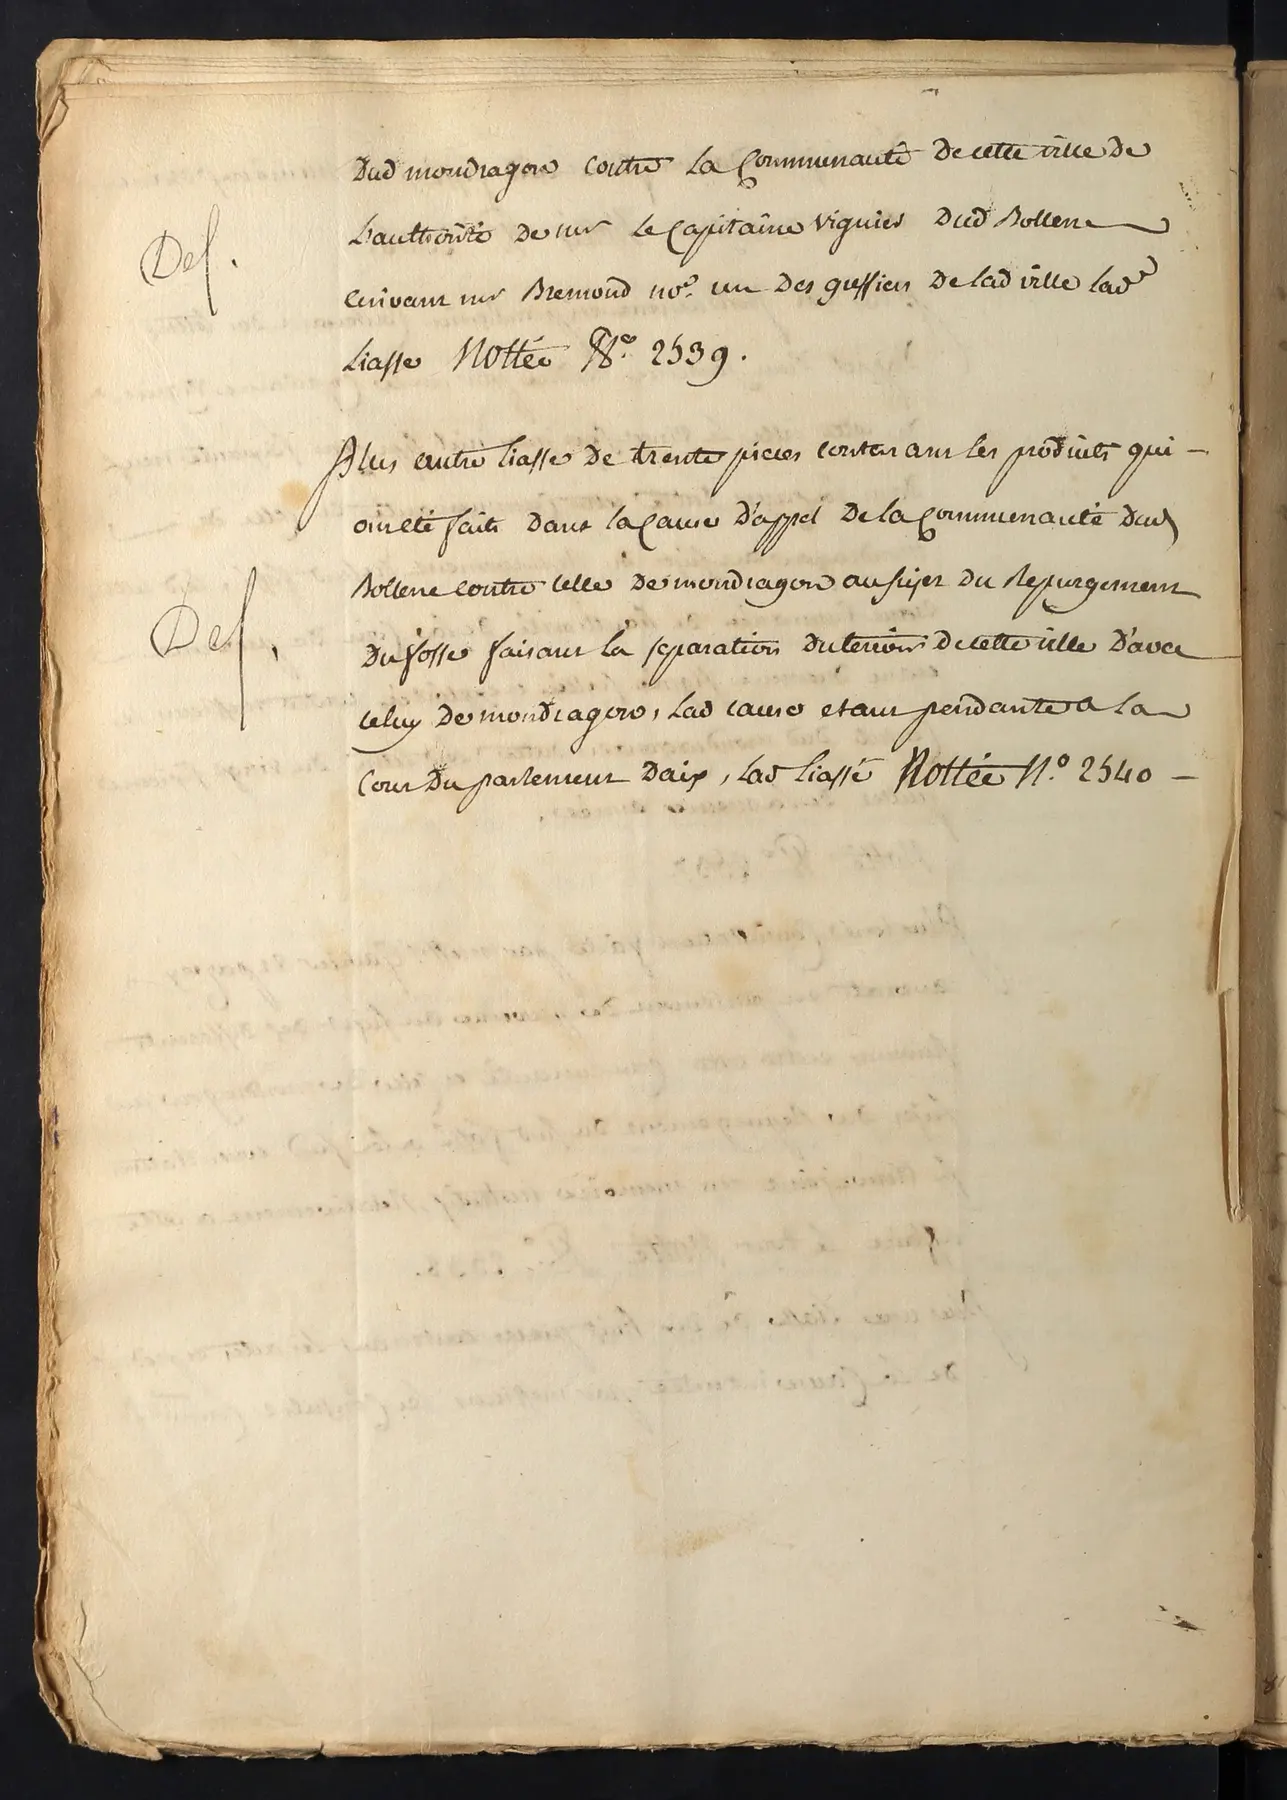 Dud mondragon contre la Communauté de cette ville de
Def.
L'authorité de mr le Capitaine viguier Dud Bollene
ecrivant mr Bremond nore. un des greffiers de lad ville lade
liasse Nottée No. 2539.
Plus autre liasse de trente pieces contenant les produits qui -
ont eté faits dans la Cause d'appel de la Communauté Dud
Def.
Bollene contre celle de mondragon au sujet du Repurgement
du fossé faisant la separation du terroir de cette ville d'avec
celuy de mondragon, lad cause etant pendante a la
Cour du parlement d'aix, lad liasse Nottée N.o 2540 -